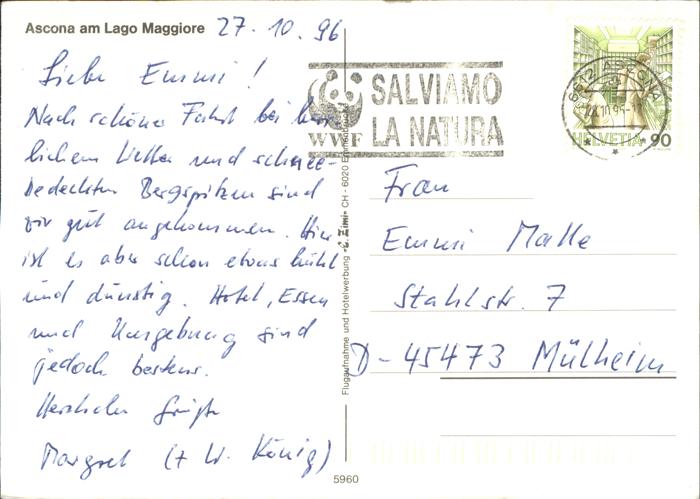 Ascona am Lago Maggiore 27.10.96
Liebe Emmi!
Nach schöner Fahrt bei herr-
lichem Wetter und schnee-
bedeckten Bergspitzen sind
wir gut angekommen. Hier
ist es aber schon etwas kühl
und dunstig. Hotel, Essen
und Umgebung sind
jedoch bestens.
Herzliche Grüße
Margret (+ W. König)
WWF
SALVIAMO
LA NATURA
6612 ASCONA
HELVETIA 90
Flugaufnahme und Hotelwerbung CH - 6020 Emmenbrücke
Frau
Emmi Malle
Stahlstr. 7
D-45473 Mülheim
5960